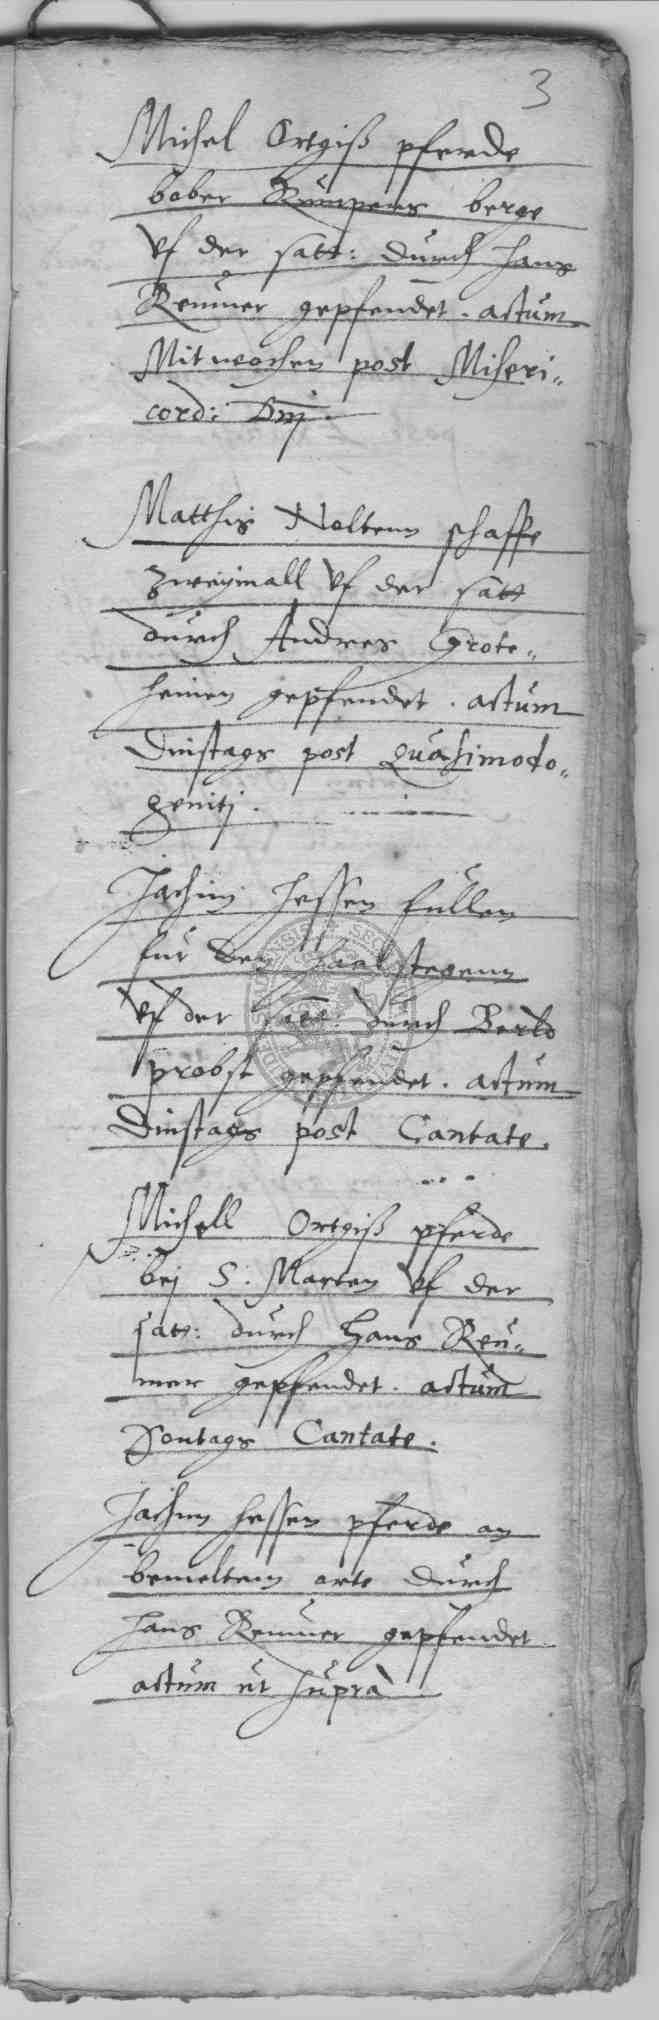 3
Michel Ortgiß pferde
bober Rumpens berge
vf der satt: durch hans
Remmer gepfendet. actum
Mitwochen post Miseri„
cord: Dnj
Matthis Nolten schaffe
zweymall vf der satt
durch Andres Grote„
heinen gepfendet. actum
Dinstags post Quasimodo„
genitj.
Jachim Hessen füllen
für den
vf der satt: durch
probst gepfendet. actum
Dinstags post Cantate.
Michell Ortgiß pferde
bej S. Marten vf der
satt: durch Hans Rem„
mer gepfendet. actum
Sontags Cantate.
Jachim Hessen pferde an
bemeltem orte durch
Hans Remmer gepfendet
actum ut supra